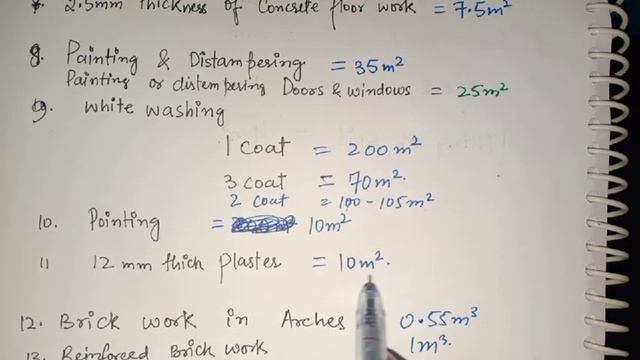 2.5mm thickness of Concrete floor work = 7.5m²
8. Painting & Distampering = 35m²
Painting or distempering Doors & windows = 25m²
9. White washing
1 Coat = 200m²
3 Coat = 70m².
2 Coat = 100-105m²
10. Pointing = 10m²
11 12 mm thick plaster = 10m².
12. Brick work in Arches 0.55m³
13. Reinforced Brick work 1m³.